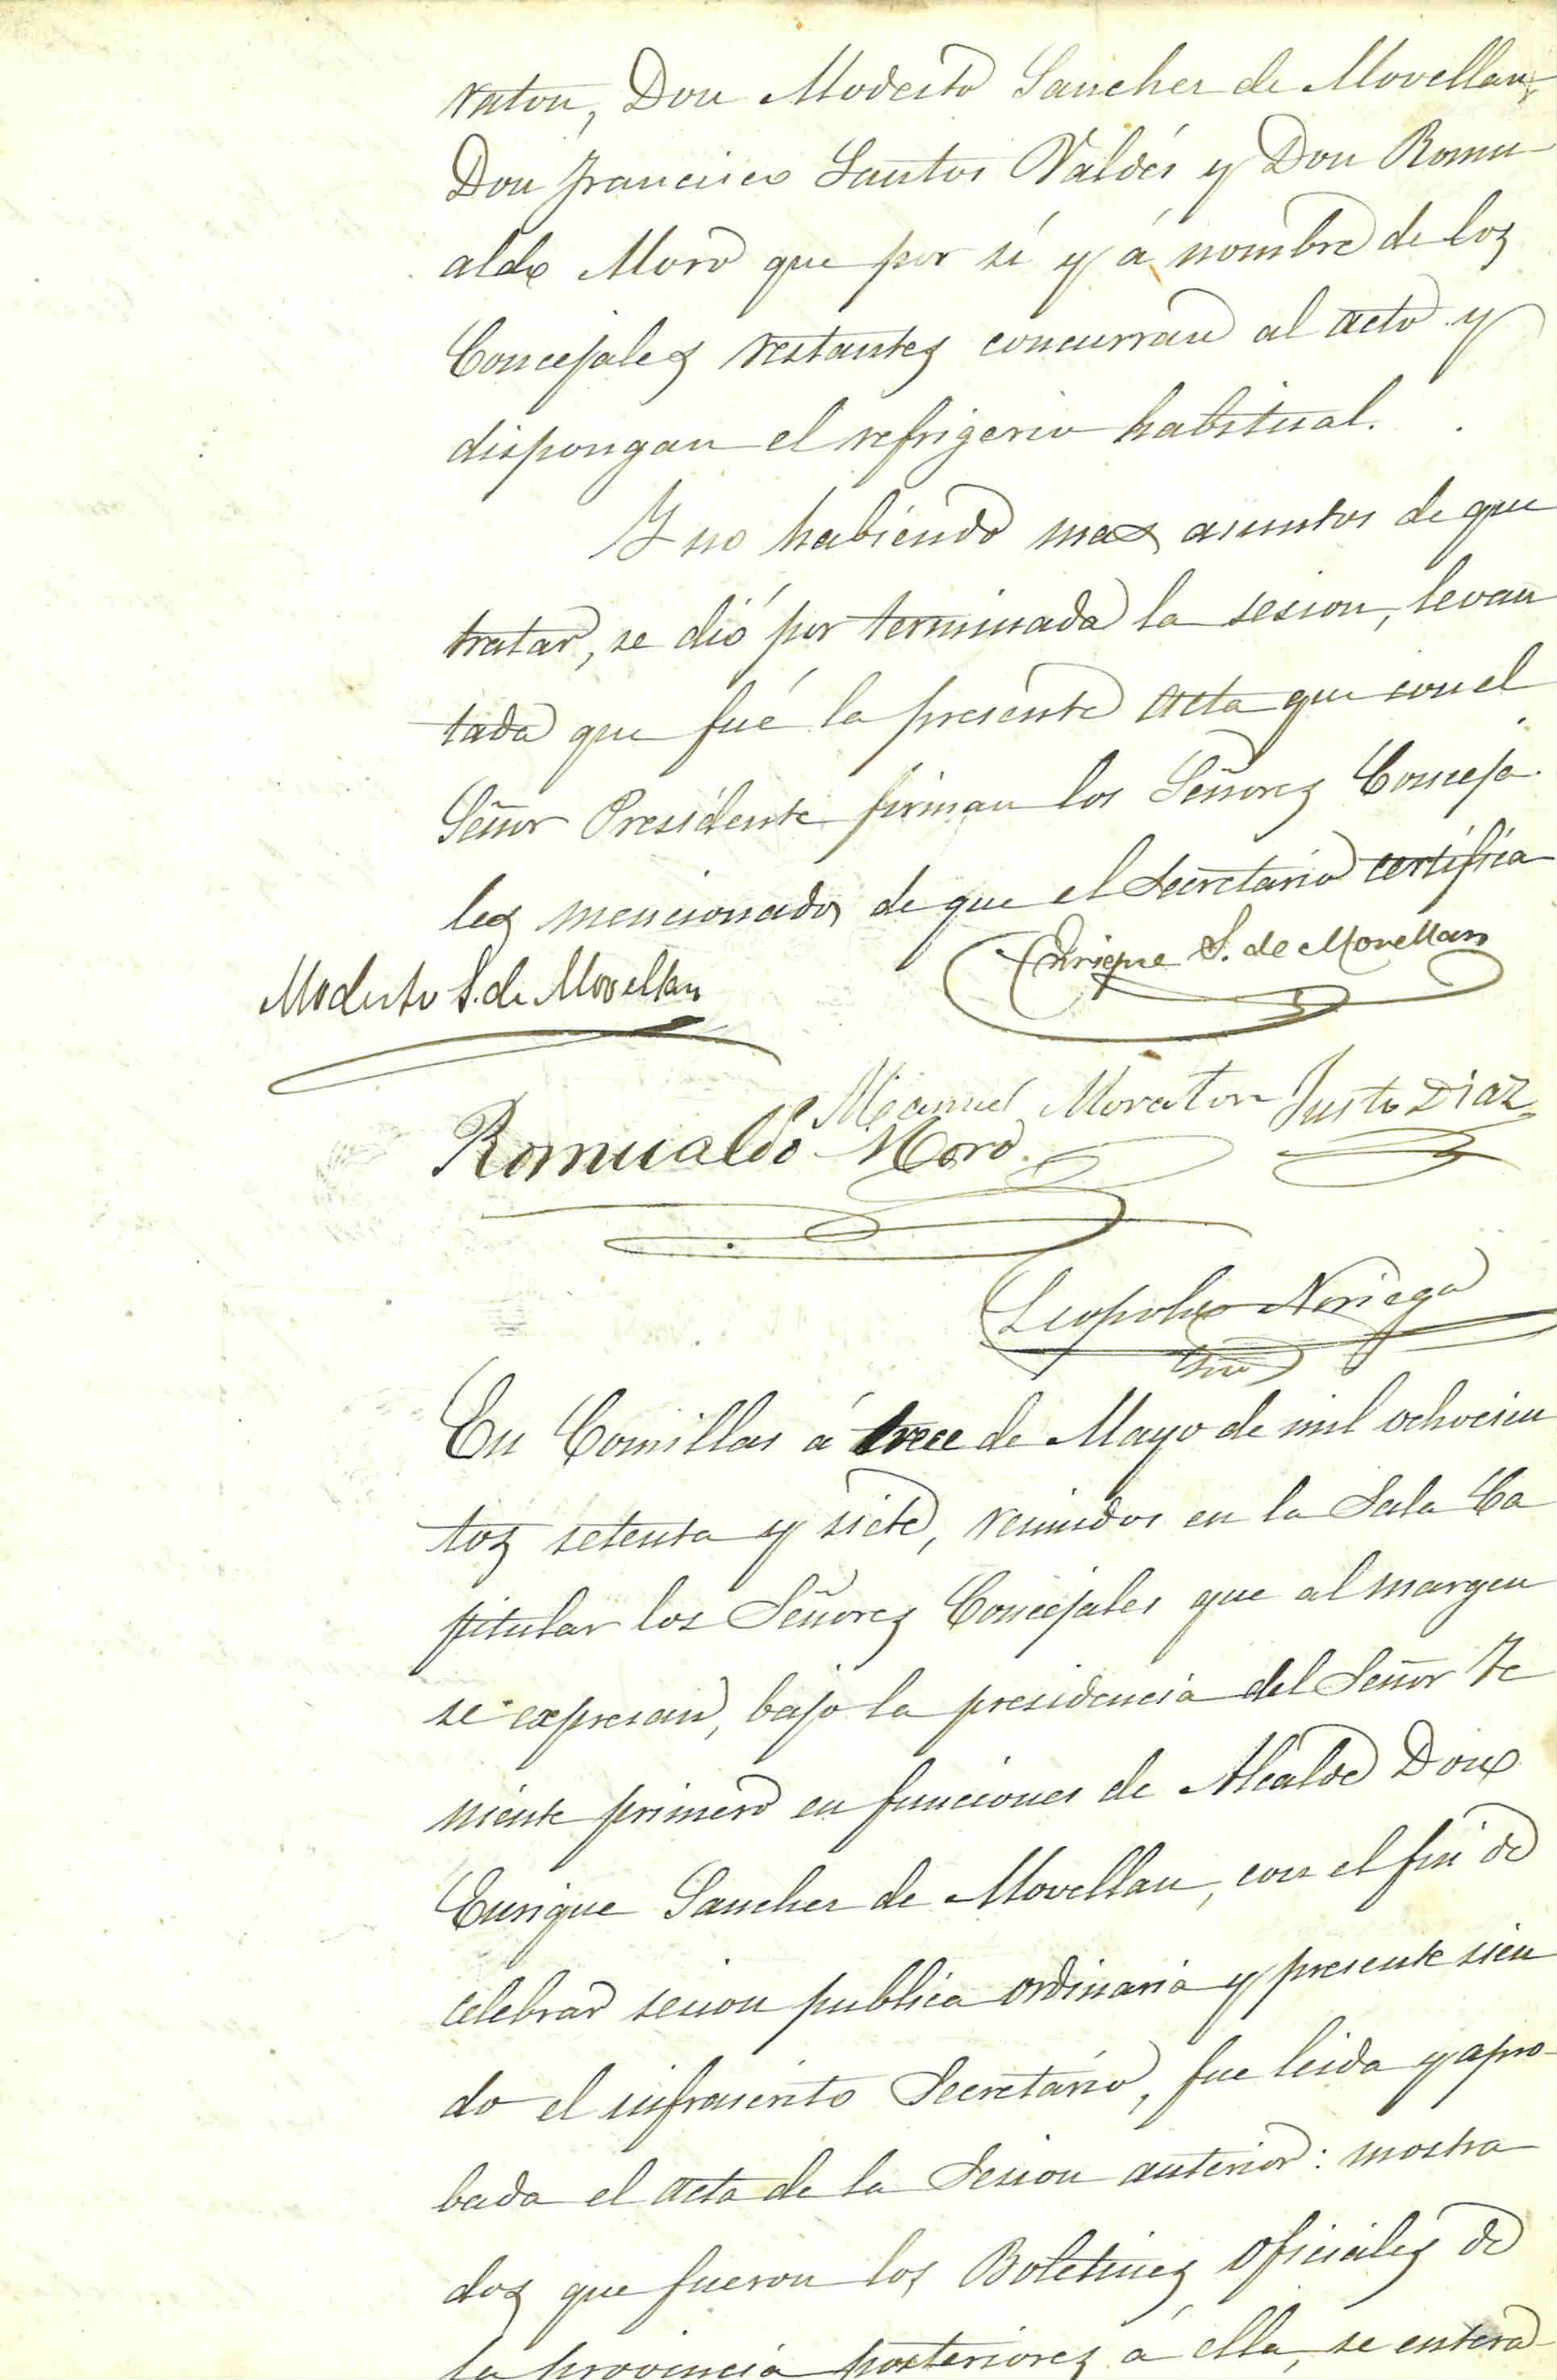 raton, Don Modesto Sanchez de Movellan,
Don Francisco Santos Valdés y Don Romu
aldo Moro que por sí y á nombre de los
Concejales restantes concurran al acto y
dispongan el refrigerio habitual.
Y no habiendo mas asuntos de que
tratar, se dió por terminada la sesion, levan
tada que fué la presente acta que con el
Señor Presidente firman los Señores Conceja
les mencionados de que el Secretario certifica
Enrique S. de Movellan
Modesto S. de Movellan
Manuel Moraton Justo Diaz
Romualdo Moro
Leopoldo Noriega
Srio
En Comillas á trece de Mayo de mil ochocien
tos setenta y siete, reunidos en la Sala Ca
pitular los Señores Concejales que al margen
se expresan, bajo la presidencia del Señor Te
niente primero en funciones de Alcalde Don
Enrique Sanchez de Movellan, con el fin de
celebrar sesion publica ordinaria y presente sien
do el infrascrito Secretario, fue leida y apro-
bada el acta de la Sesion anterior: mostra
dos que fueron los Boletines oficiales de
la provincia posteriores á ella, se enteró